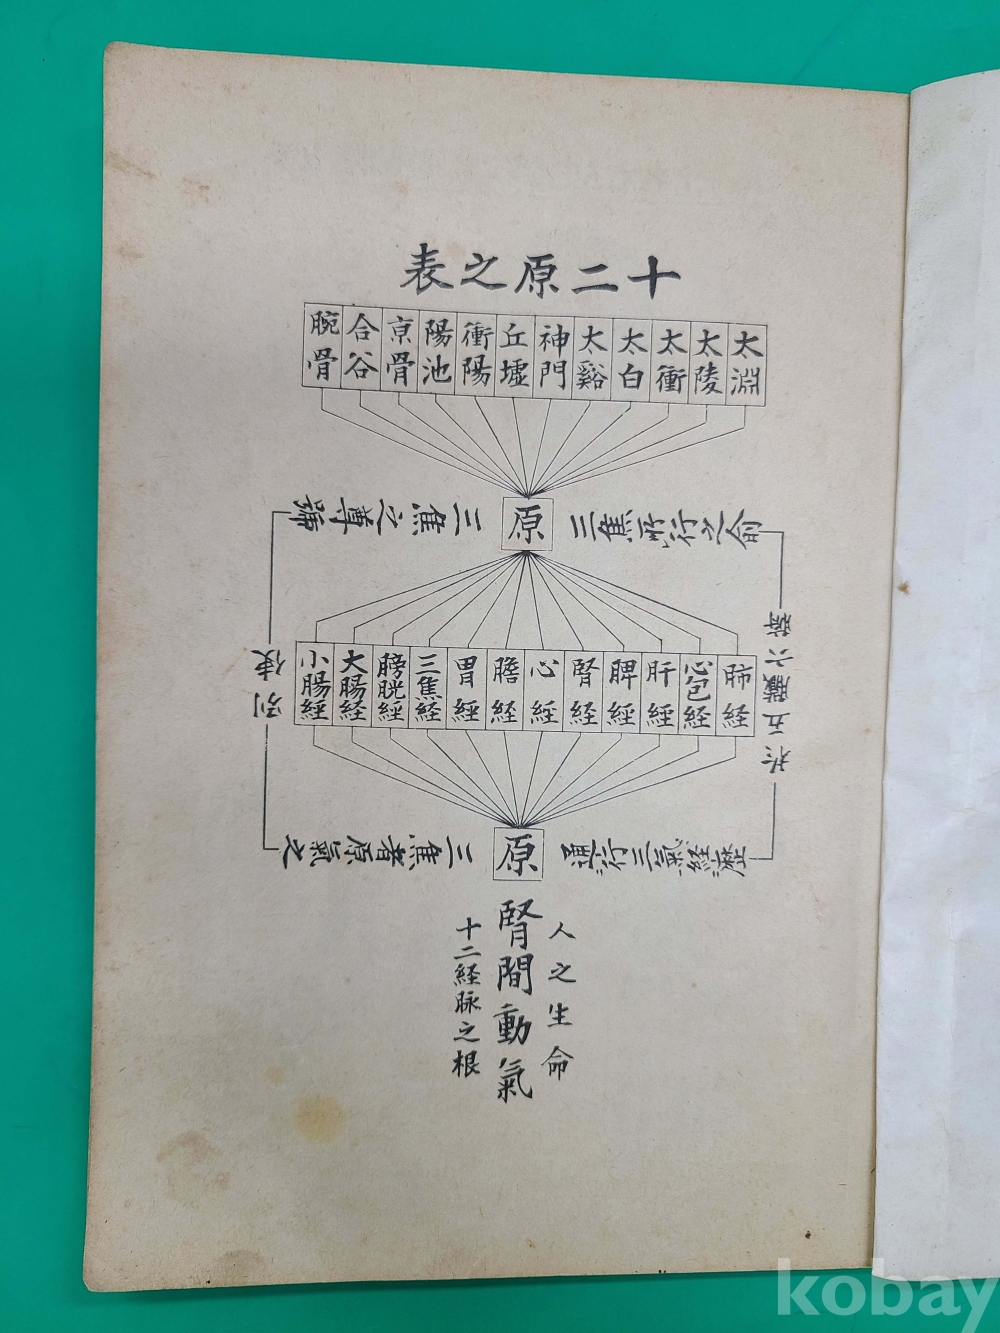 十二原之表
太淵
太陵
太衝
太白
太谿
神門
丘墟
衝陽
陽池
京骨
合谷
腕骨
原
三焦所行之兪
三焦之尊號
肺経
心包経
肝経
脾経
腎経
心経
膽経
胃経
三焦経
膀胱経
大腸経
小腸経
原
三焦者原氣之
別使
通行三氣経歴
於五臓六腑
人之生命
腎間動氣
十二経脉之根
kobay